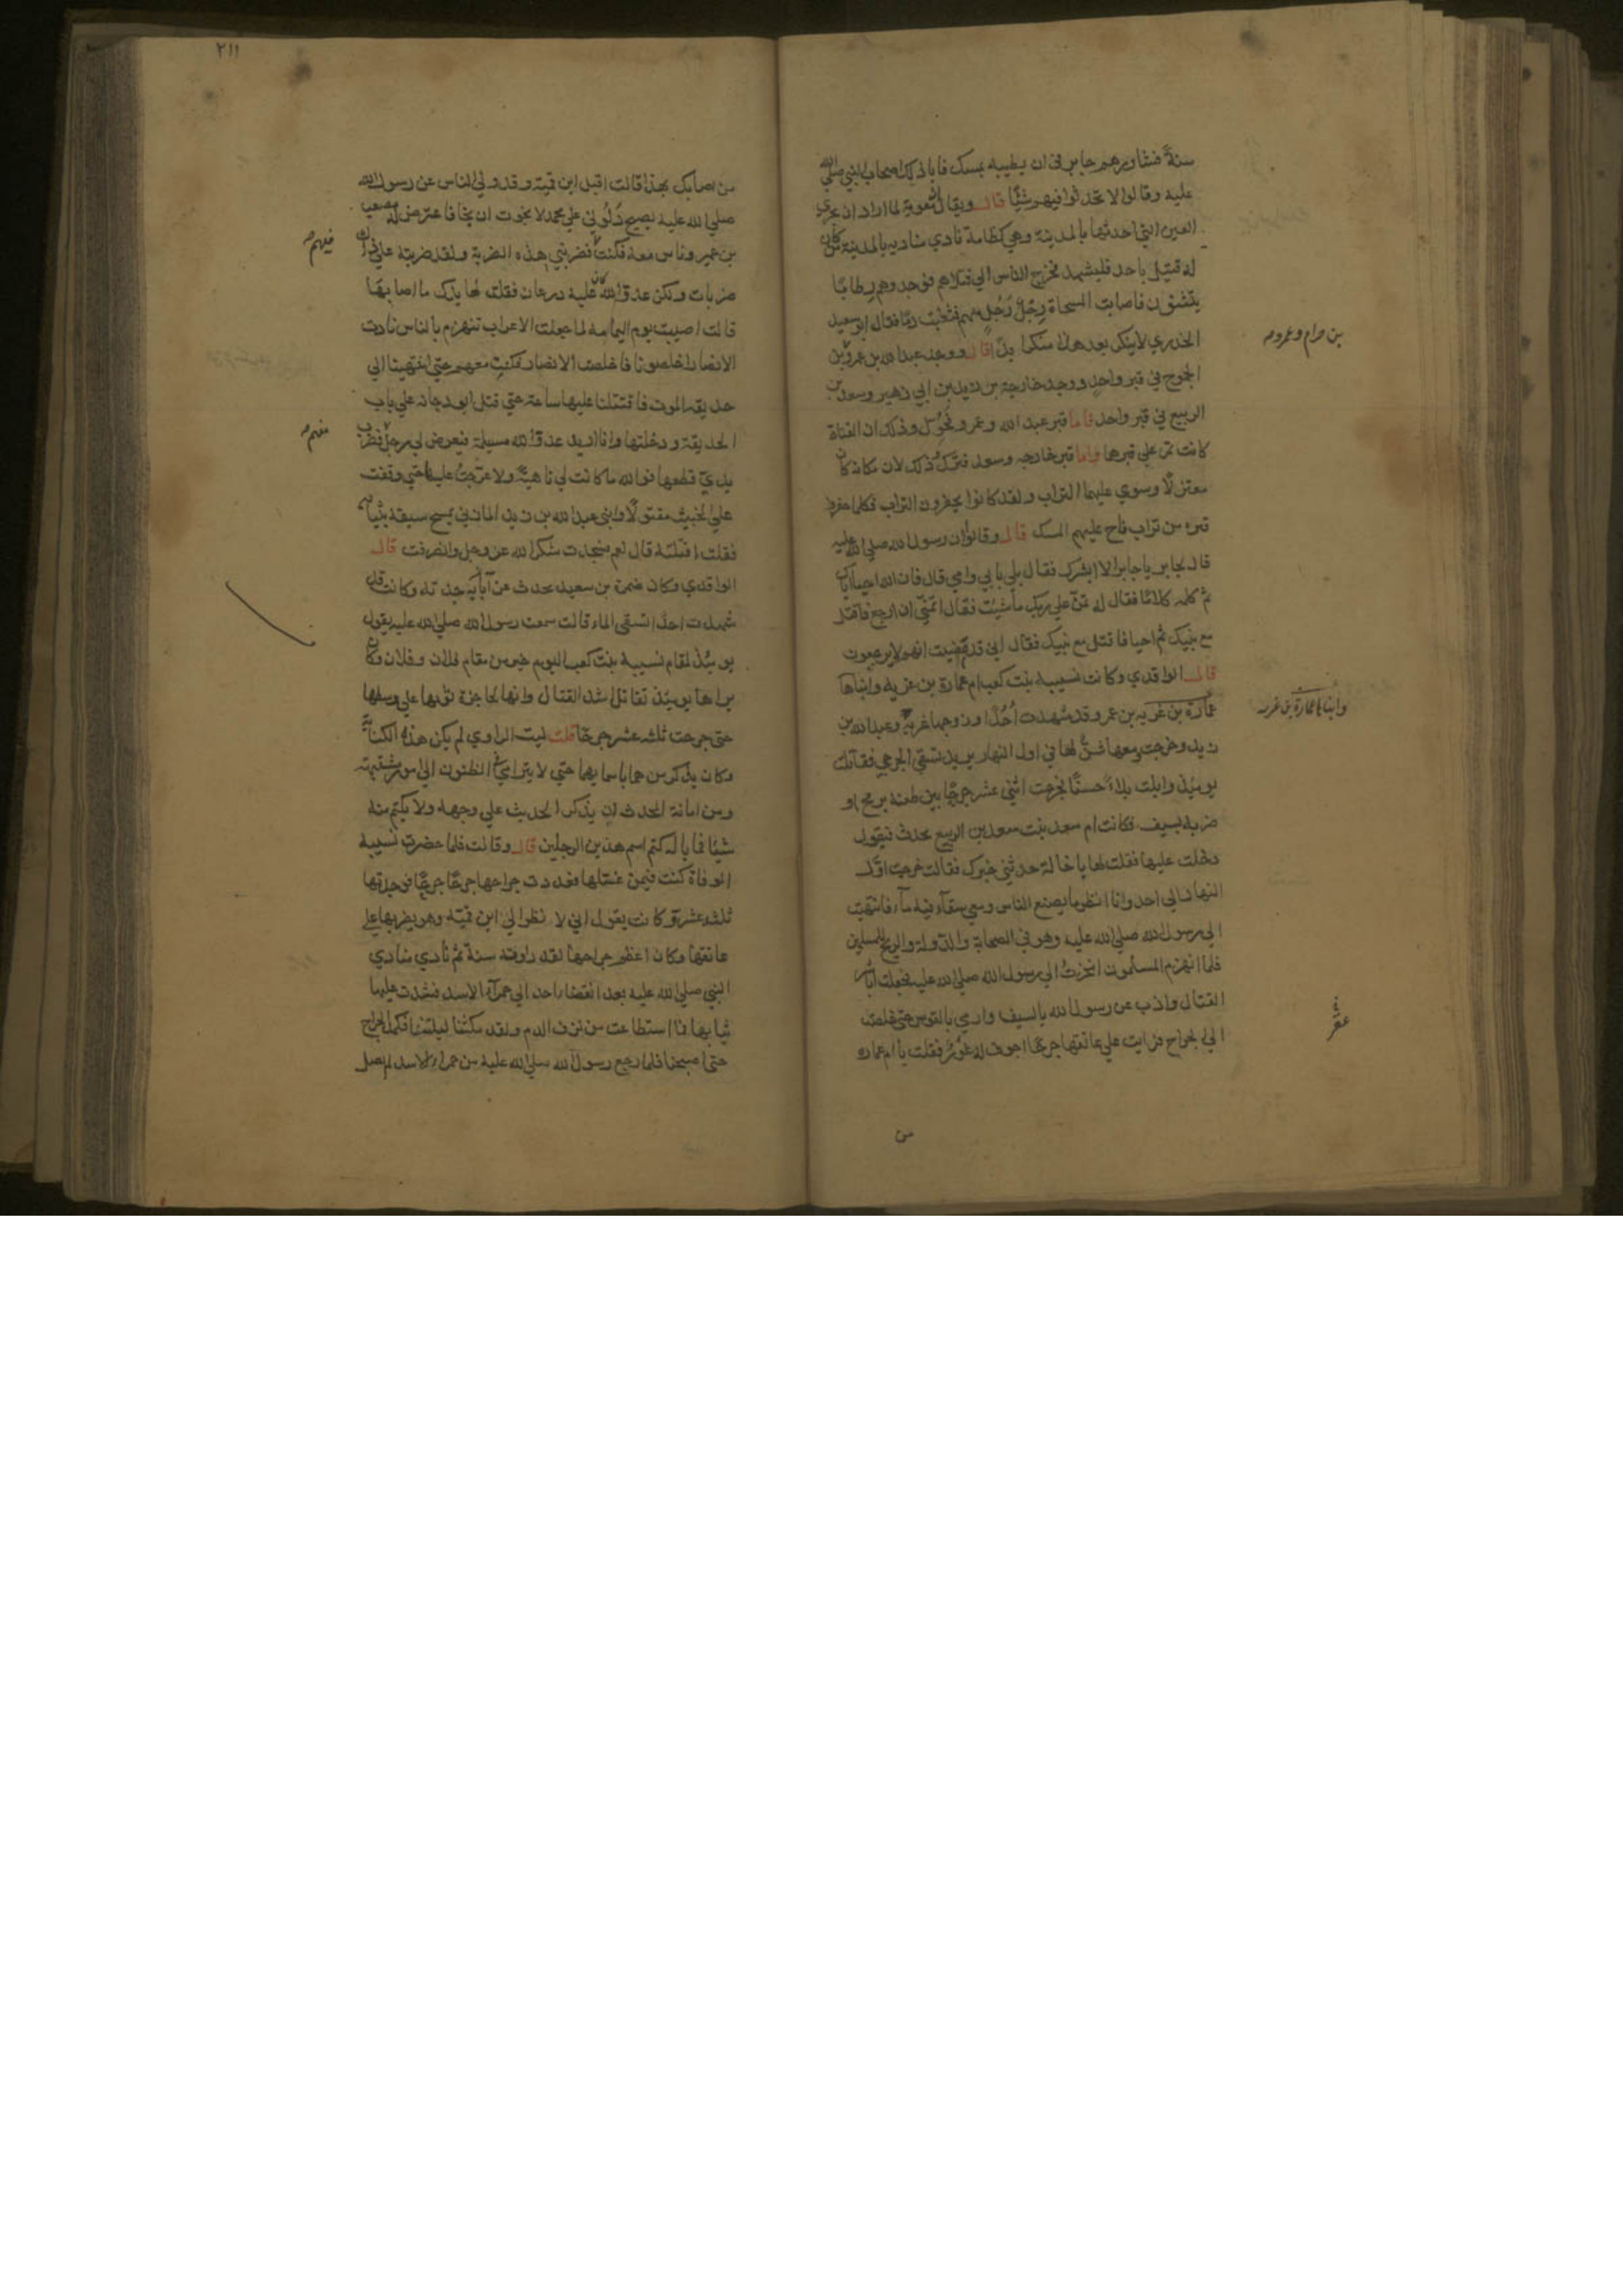 سنةً فشاورهم جابر في ان يطيبه بمسك فابا ذلك اصحاب النبي صلي الله
عليه وقالوا لا تحدثوا فيهم شيًا قال ويقال ان معوية لما اراد ان يجري
العين التي احدثها بالمدينة وهي كظامة نادي مناديه بالمدينة من كان
له قتيل باحد فليشهد فخرج الناس الي قتلاهم فوجدوهم رطابًا
يتثنون فاصابت المسحاة رِجْلَ رَجُلٍ منهم فثعبت دمًا فقال ابو سعيد
الخدري لا ينكر بعد هذا منكر ابدًا قال ووجد عبد الله بن عمرو بن
الجموح في قبر واحدٍ ووجد خارجة بن زيد بن ابي زهير وسعد بن
الربيع في قبر واحد فاما قبر عبد الله وعمرو فحُوِّل وذلك ان القناة
كانت تمر علي قبرها واما قبر خارجه وسعد فتُرك ذلك لان مكانه كان
معتزلًا وسوي عليهما التراب ولقد كانوا يحفرون التراب فكلما حفروا
قبره من تراب فاح عليهم المسك قال وقالوا ان رسول الله صلي الله عليه
قال لجابر يا جابر الا ابشرك فقال بلي بابي وامي قال فان الله احيا اباك
ثم كلمه كلامًا فقال له تمنّ علي ربك ما شيت فقال اتمني ان ارجع فاقتل
مع نبيك ثم احيا فاقتل مع نبيك فقال اني قد قضيت انهم لا يرجعون
قال الواقدي وكانت نسيبه بنت كعب ام عمارة بن غزيه وابناها
عمارة بن غزيه بن عمرو قد شهدت اُحُدًا وزوجها غزيه وعبد الله بن
زيد وخرجت ومعها شنٌّ لها في اول النهار يريد تستقي الجرحي فقاتلت
يوميذ وابلت بلاءً حسنًا فجرحت اثني عشر جرحًا بين طعنه برمح او
ضربه بسيف فكانت ام سعد بنت سعد بن الربيع تحدث فيقول
دخلت عليها فقلت لها يا خالة حدثني خبرك فقالت خرجت اوّل
النهار الي احد وانا انظر ما يصنع الناس ومعي سقآء فيه مآء فانتهيت
الي رسول الله صلي الله عليه وهو في الصحابة والدولة والريح للمسلمين
فلما انهزم المسلمون انحزتُ الي رسول الله صلي الله عليه فجعلت اباشر
القتال واذب عن رسول الله بالسيف وارمي بالقوس حتي خلصت
الي الجراح فرايت علي عاتقها جرحًا اجوف له غَوْرٌ فقلت يا ام عمارة
من
بن حرام وعمرو
وابناها عمارة بن غزيه
من اصابك بهذا قالت اقبل ابن قمية وقد ولي الناس عن رسول الله
صلي الله عليه يصيح دُلّوني علي محمد لا نجوت ان نجا فاعترض له مصعب
بن عمير وناس معه فكنت فضربني هذه الضربة ولقد ضربته علي ذلك
ضربات ولكن عدوّ الله كان عليه درعان فقلت لها يدك ما اصابها
قالت اصيبت يوم اليمامه لما جعلت الاعراب تنهزم بالناس نادت
الانصار اخلصونا فاخلصت الانصار فكنت معهم حتي انتهينا الي
حديقه الموت فاقتتلنا عليها ساعة حتي قتل ابو دجانه علي باب
الحديقة ودخلتها وانا اريد عدوّ الله مسيلمة فيعرض لي رجل فضرب
يدي فقطعها فوالله ما كانت لي ناهيةً ولا عرّجتُ عليها حتي وقفت
علي الخبيث مقتولًا وابني عبد الله بن زيد المازني يمسح سيفه بثيابه
فقلت اقتلته قال نعم فسجدت شكرا لله عز وجل وانصرفت قال
الواقدي وكان ضمرة بن سعيد يحدث عن آبايه جدته وكانت قد
شهدت احدًا تسقي الماء قالت سمعت رسول الله صلي الله عليه يقول
يوميُذ لمقام نسيبه بنت كعب اليوم خير من مقام فلان وفلان وكان
يراها يوميُذ تقاتل اشد القتال وانها لحاجزة ثوبها علي وسطها
حتي جرحت ثلثه عشر جرحًا قلت ليت الراوي لم يكن هذه الكنايه
وكان يذكر من هما باسمايهما حتي لا يترامي الظنون الي امور مشتبهة
ومن امانة المحدث ان يذكر الحديث علي وجهه ولا يكتم منه
شيًا فما باله كتم اسم هذين الرجلين قال وقالت فلما حضرت نسيبة
الوفاة كنت فيمن غسّلها فعددت جراحها جرحًا جرحًا فوجدتها
ثلثه عشرة وكانت يقول اني لا نظر الي ابن قميّه وهو يضربها علي
عاتقها وكان اعظم جراحها لقد داوته سنةً ثم نادي منادي
النبي صلي الله عليه بعد انقضاء احد الي حمرآء الاسد فشدت عليها
ثيابها فما استطاعت من نزف الدم ولقد مكثنا ليلتنا نكمد الجراح
حتي اصبحنا فلما رجع رسول الله صلي الله عليه من حمراء الاسد لم يصل
فيهم
منهم
٢١١